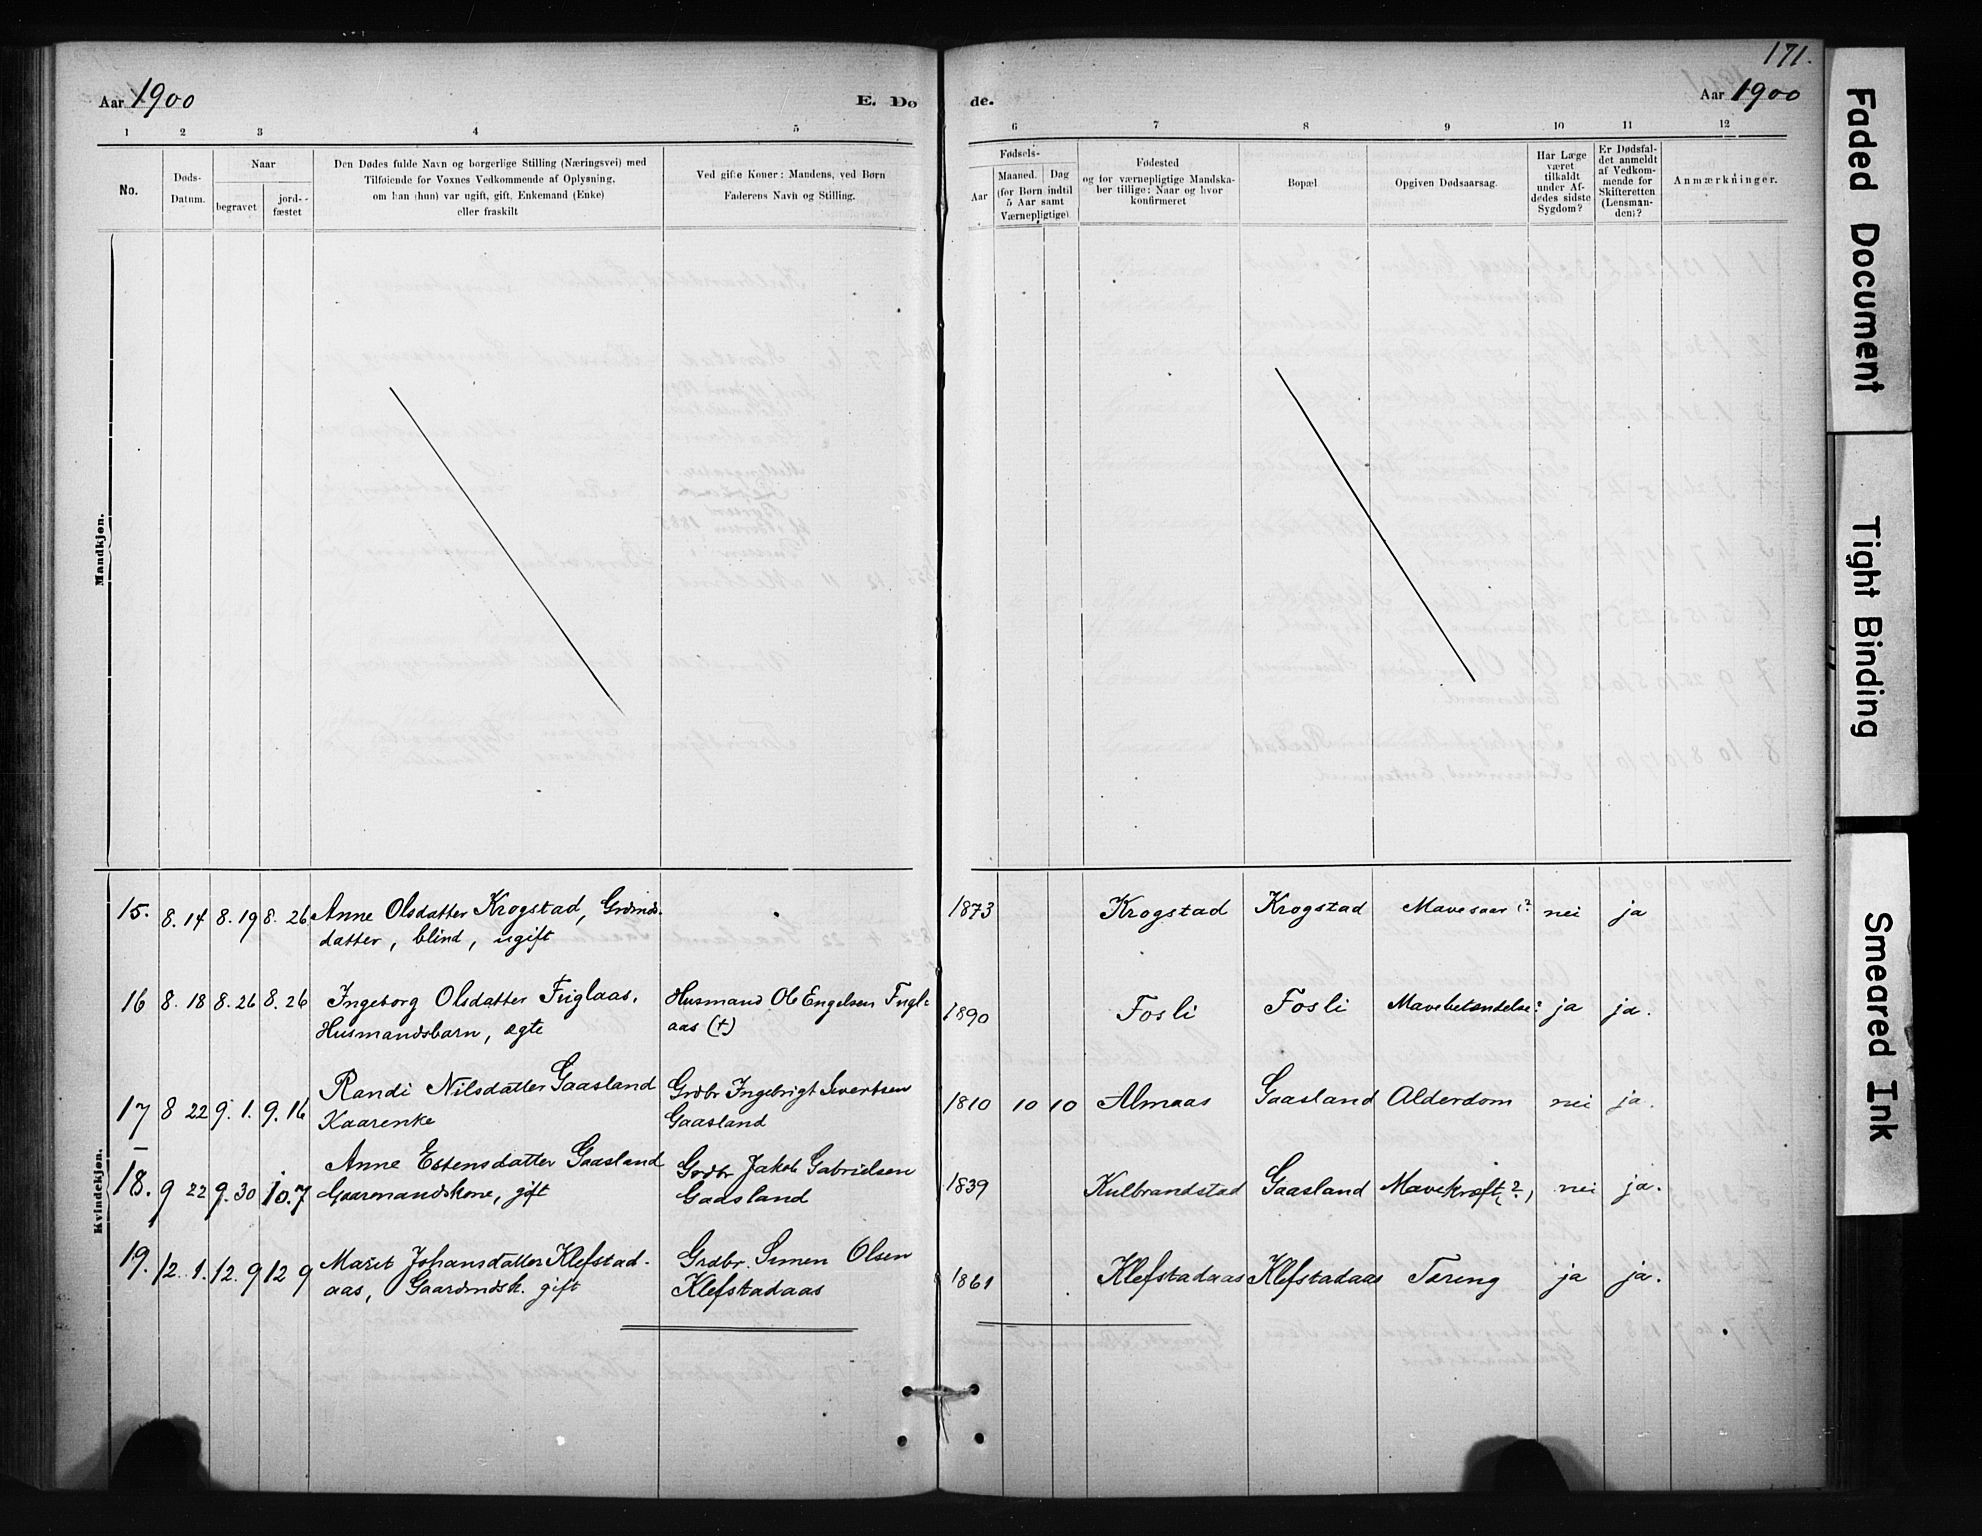 171.
Aar 1900
E. Dø
de.
Aar 1900
1 2 3 4 5 6 7 8 9 10 11 12
No.
Døds-
Datum.
Naar
begravet
jord-
fæstet
Den Dødes fulde Navn og borgerlige Stilling (Næringsvei) med
Tilføiende for Voxnes Vedkommende af Oplysning,
om han (hun) var ugift, gift, Enkemand (Enke)
eller fraskilt
Ved gifte Koner: Mandens, ved Børn
Faderens Navn og Stilling.
Fødsels-
Aar
Maaned.
Dag
(for Børn indtil
5 Aar samt
Værnepligtige)
Fødested
og for værnepligtige Mandska-
ber tillige: Naar og hvor
konfirmeret
Bopæl
Opgiven Dødsaarsag.
Har Læge
været
tilkaldt
under Af-
dødes sidste
Sygdom?
Er Dødsfal-
det anmeldt
af Vedkom-
mende for
Skifteretten
(Lensman-
den)?
Anmærkninger.
Mandkjøn.
Kvindekjøn.
15. 8. 14 8. 19 8. 26 Anne Olsdatter Krogstad, Grdmds. 1873 Krogstad Krogstad Mavesaar (? nei ja
datter, blind, ugift
16 8. 18 8. 26 8. 26 Ingeborg Olsdatter Fuglaas, Husmand Ole Engelsen Fugl- 1890 Fosli Fosli Mavebetændelse: ja ja.
Husmandsbarn, ægte aas (†)
17 8 22 9. 1. 9. 16 Randi Nilsdatter Gaasland Grdbr Ingebrigt Sivertsen 1810 10 10 Almaas Gaasland Alderdom nei ja.
Kaarenke Gaasland
18. 9 22 9. 30 10. 7 Anne Estensdatter Gaasland Grdbr Jakob Gabrielsen 1839 Kulbrandstad Gaasland Mavekræft (?) nei ja.
Gaarmandskone, gift Gaasland
19. 12. 1. 12. 9 12 9 Marit Johansdatter Klefstad- Grdbr. Simen Olsen 1861 Klefstadaas Klefstadaas Tæring ja ja.
aas, Gaardmdsk. gift Klefstadaas
Faded Document
Tight Binding
Smeared Ink